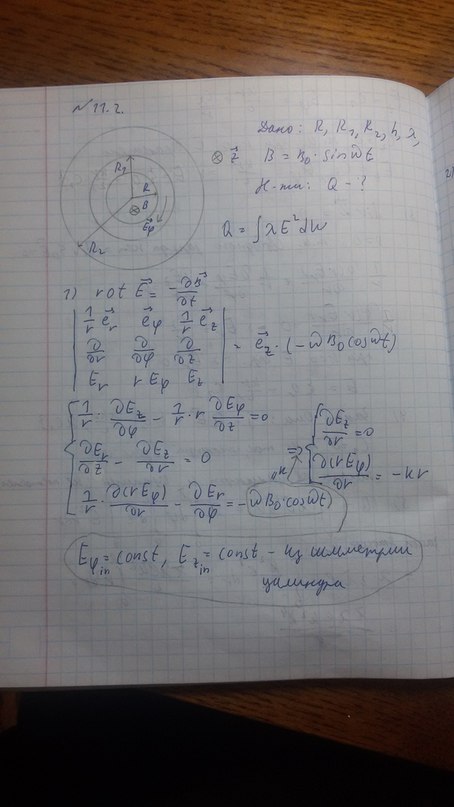 № 11.2.
Дано: R, R₁, R₂, h, λ,
⊗ z⃗ B = B₀·sin ωt
Н-ти: Q - ?
Q = ∫λE²dV
R₁
R
B⃗
E⃗φ
R₂
1) rot E⃗ = -∂B⃗/∂t
| 1/r e⃗r e⃗φ 1/r e⃗z |
| ∂/∂r ∂/∂φ ∂/∂z | = e⃗z·(-ωB₀cos ωt)
| Er rEφ Ez |
{ 1/r · ∂Ez/∂φ - 1/r · r ∂Eφ/∂z = 0
∂Er/∂z - ∂Ez/∂r = 0
1/r · ∂(rEφ)/∂r - ∂Er/∂φ = -ωB₀·cos ωt
"k"
=> { ∂Ez/∂r = 0
∂(rEφ)/∂r = -kr
Eφin = const, Ezin = const - из симметрии
цилиндра